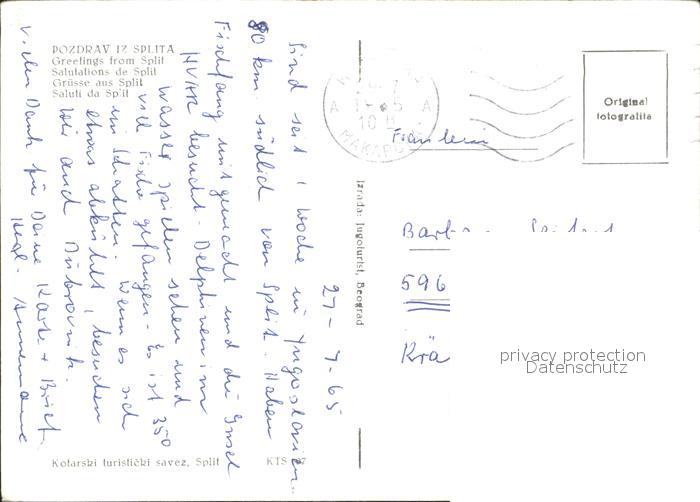 POZDRAV IZ SPLITA
Greetings from Split
Salutations de Split
Grüsse aus Split
Saluti da Split
27-7-65
Sind seit 1 Woche in Jugoslavien
80 km. südlich von Split. Haben
Fischfang mitgemacht und die Insel
HVAR besucht. Delphinen im
Wasser spielen sehen und
viele Fische gefangen. Es ist 35°
im Schatten. Wenn es sich
etwas abkühlt, besuchen
wir auch Dubrovnik.
Vielen Dank für Deine Karte + Brief.
Herzl. Annemarie
Kotarski turistički savez, Split
KTS
Izrada: Jugoturist, Beograd
MAKAR
Original
fotografija
Fräulein
Barb
596
Krä
privacy protection
Datenschutz